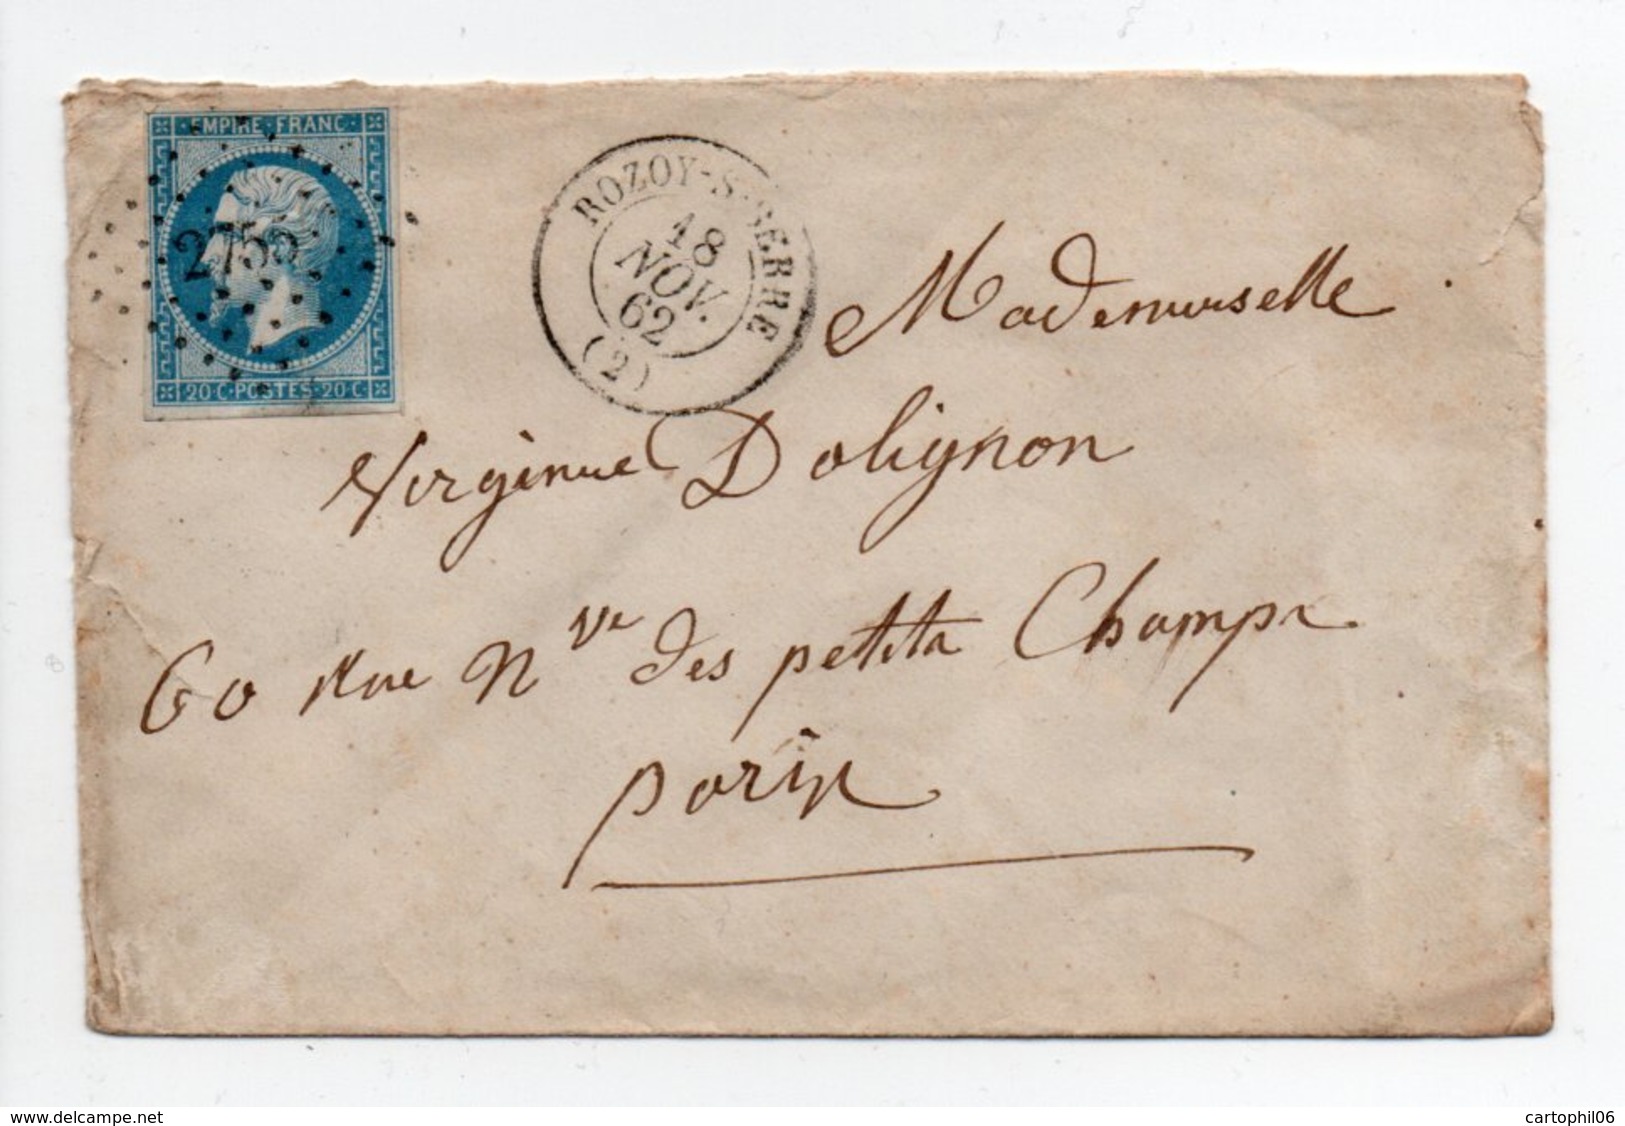 EMPIRE · FRANC ·
2755
20·C·POSTES·20·C·
ROZOY-S-SERRE
18
NOV.
62
(2)
Mademoiselle
Virginie Dolignon
60 Rue Nve des petits Champs
paris
www.delcampe.net
cartophil06